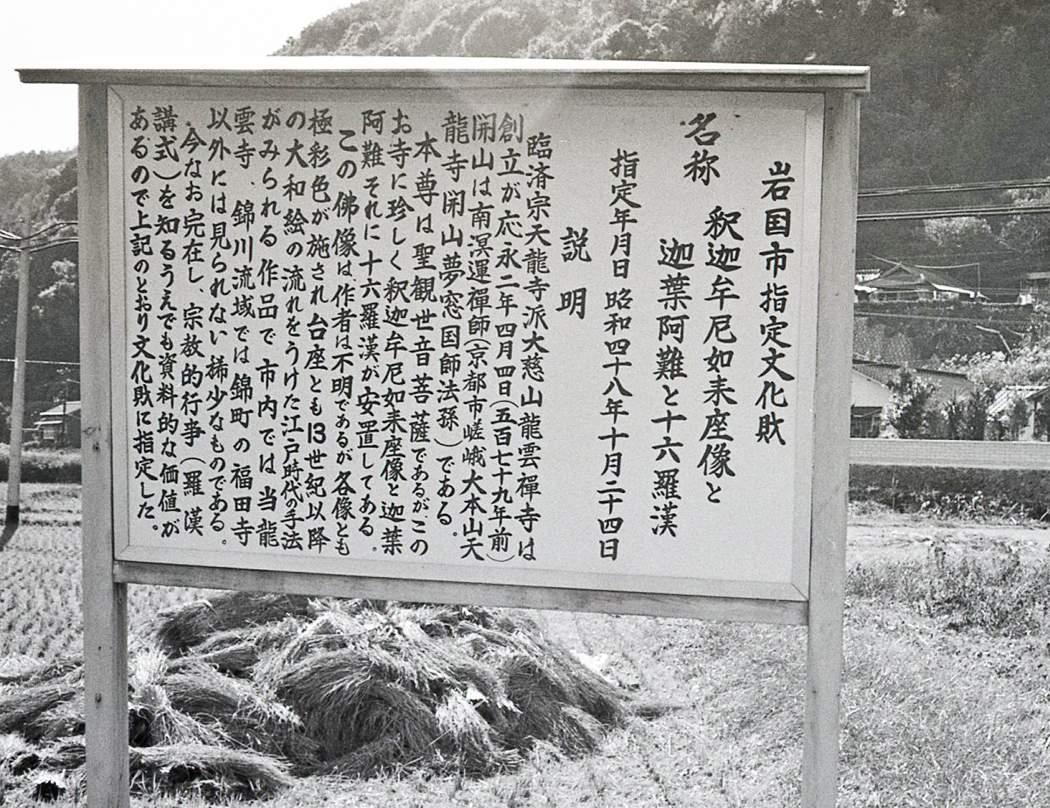 岩国市指定文化財
名称 釈迦牟尼如来座像と
迦葉阿難と十六羅漢
指定年月日 昭和四十八年十月二十四日
説明
臨済宗天龍寺派大慈山龍雲禅寺は
創立が応永二年四月四日(五百七十九年前)
開山は南溟運禅師(京都市嵯峨大本山天
龍寺開山夢窓国師法孫)である。
本尊は聖観世音菩薩であるがこの
お寺に珍しく釈迦牟尼如来座像と迦葉
阿難それに十六羅漢が安置してある。
この佛像は作者は不明であるが各像とも
極彩色が施され台座とも13世紀以降
の大和絵の流れをうけた江戸時代の手法
がみられる作品で市内では当龍
雲寺、錦川流域では錦町の福田寺
以外には見られない稀少なものである。
今なお完在し、宗教的行事(羅漢
講式)を知るうえでも資料的な価値が
あるので上記のとおり文化財に指定した。